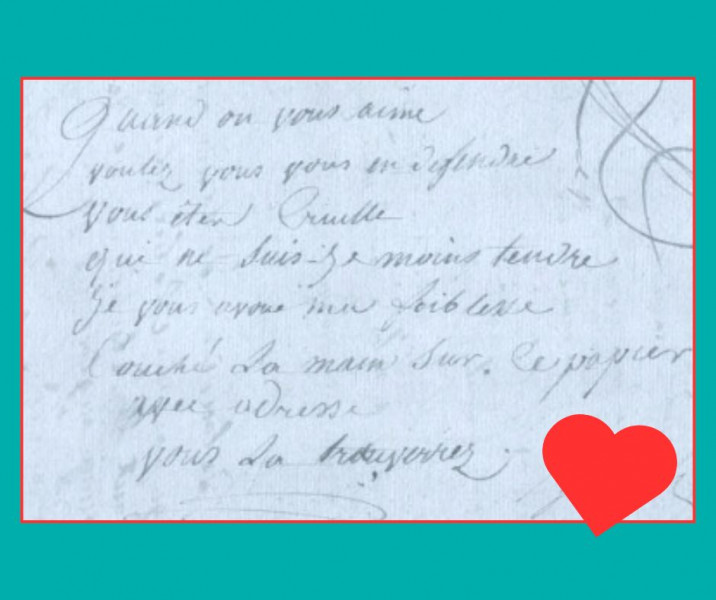 Quand on vous aime
voulez vous vous en defendre
vous êtes Cruelle
que ne suis-je moins tendre
je vous avoue ma foiblesse
Couché la main sur. Ce papier
avec adresse
vous la trouverrez